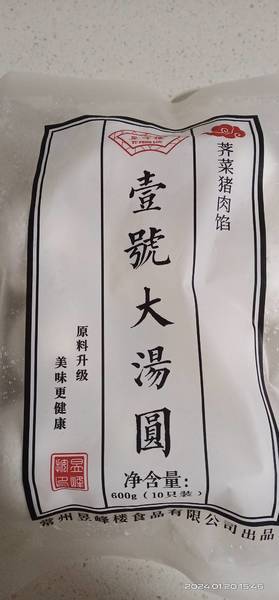 荠菜猪肉馅
壹號大湯圓
原料升级
美味更健康
净含量:
600g（10只装）
常州昱峰楼食品有限公司出品
2024.01.20 15:46